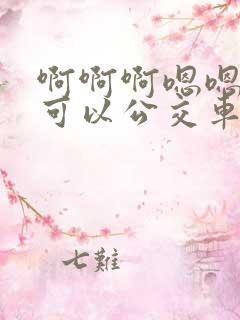 啊啊啊嗯嗯
可以公交车
七難